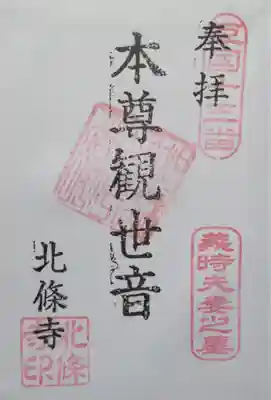 奉拝
本尊観世音
北條寺
義時夫妻之墓
北條寺印